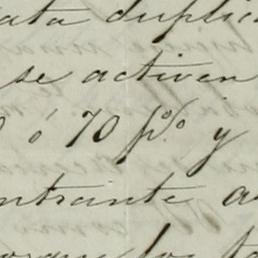 ata duplic
se activen
0 ó 70 p% y
ntrante a